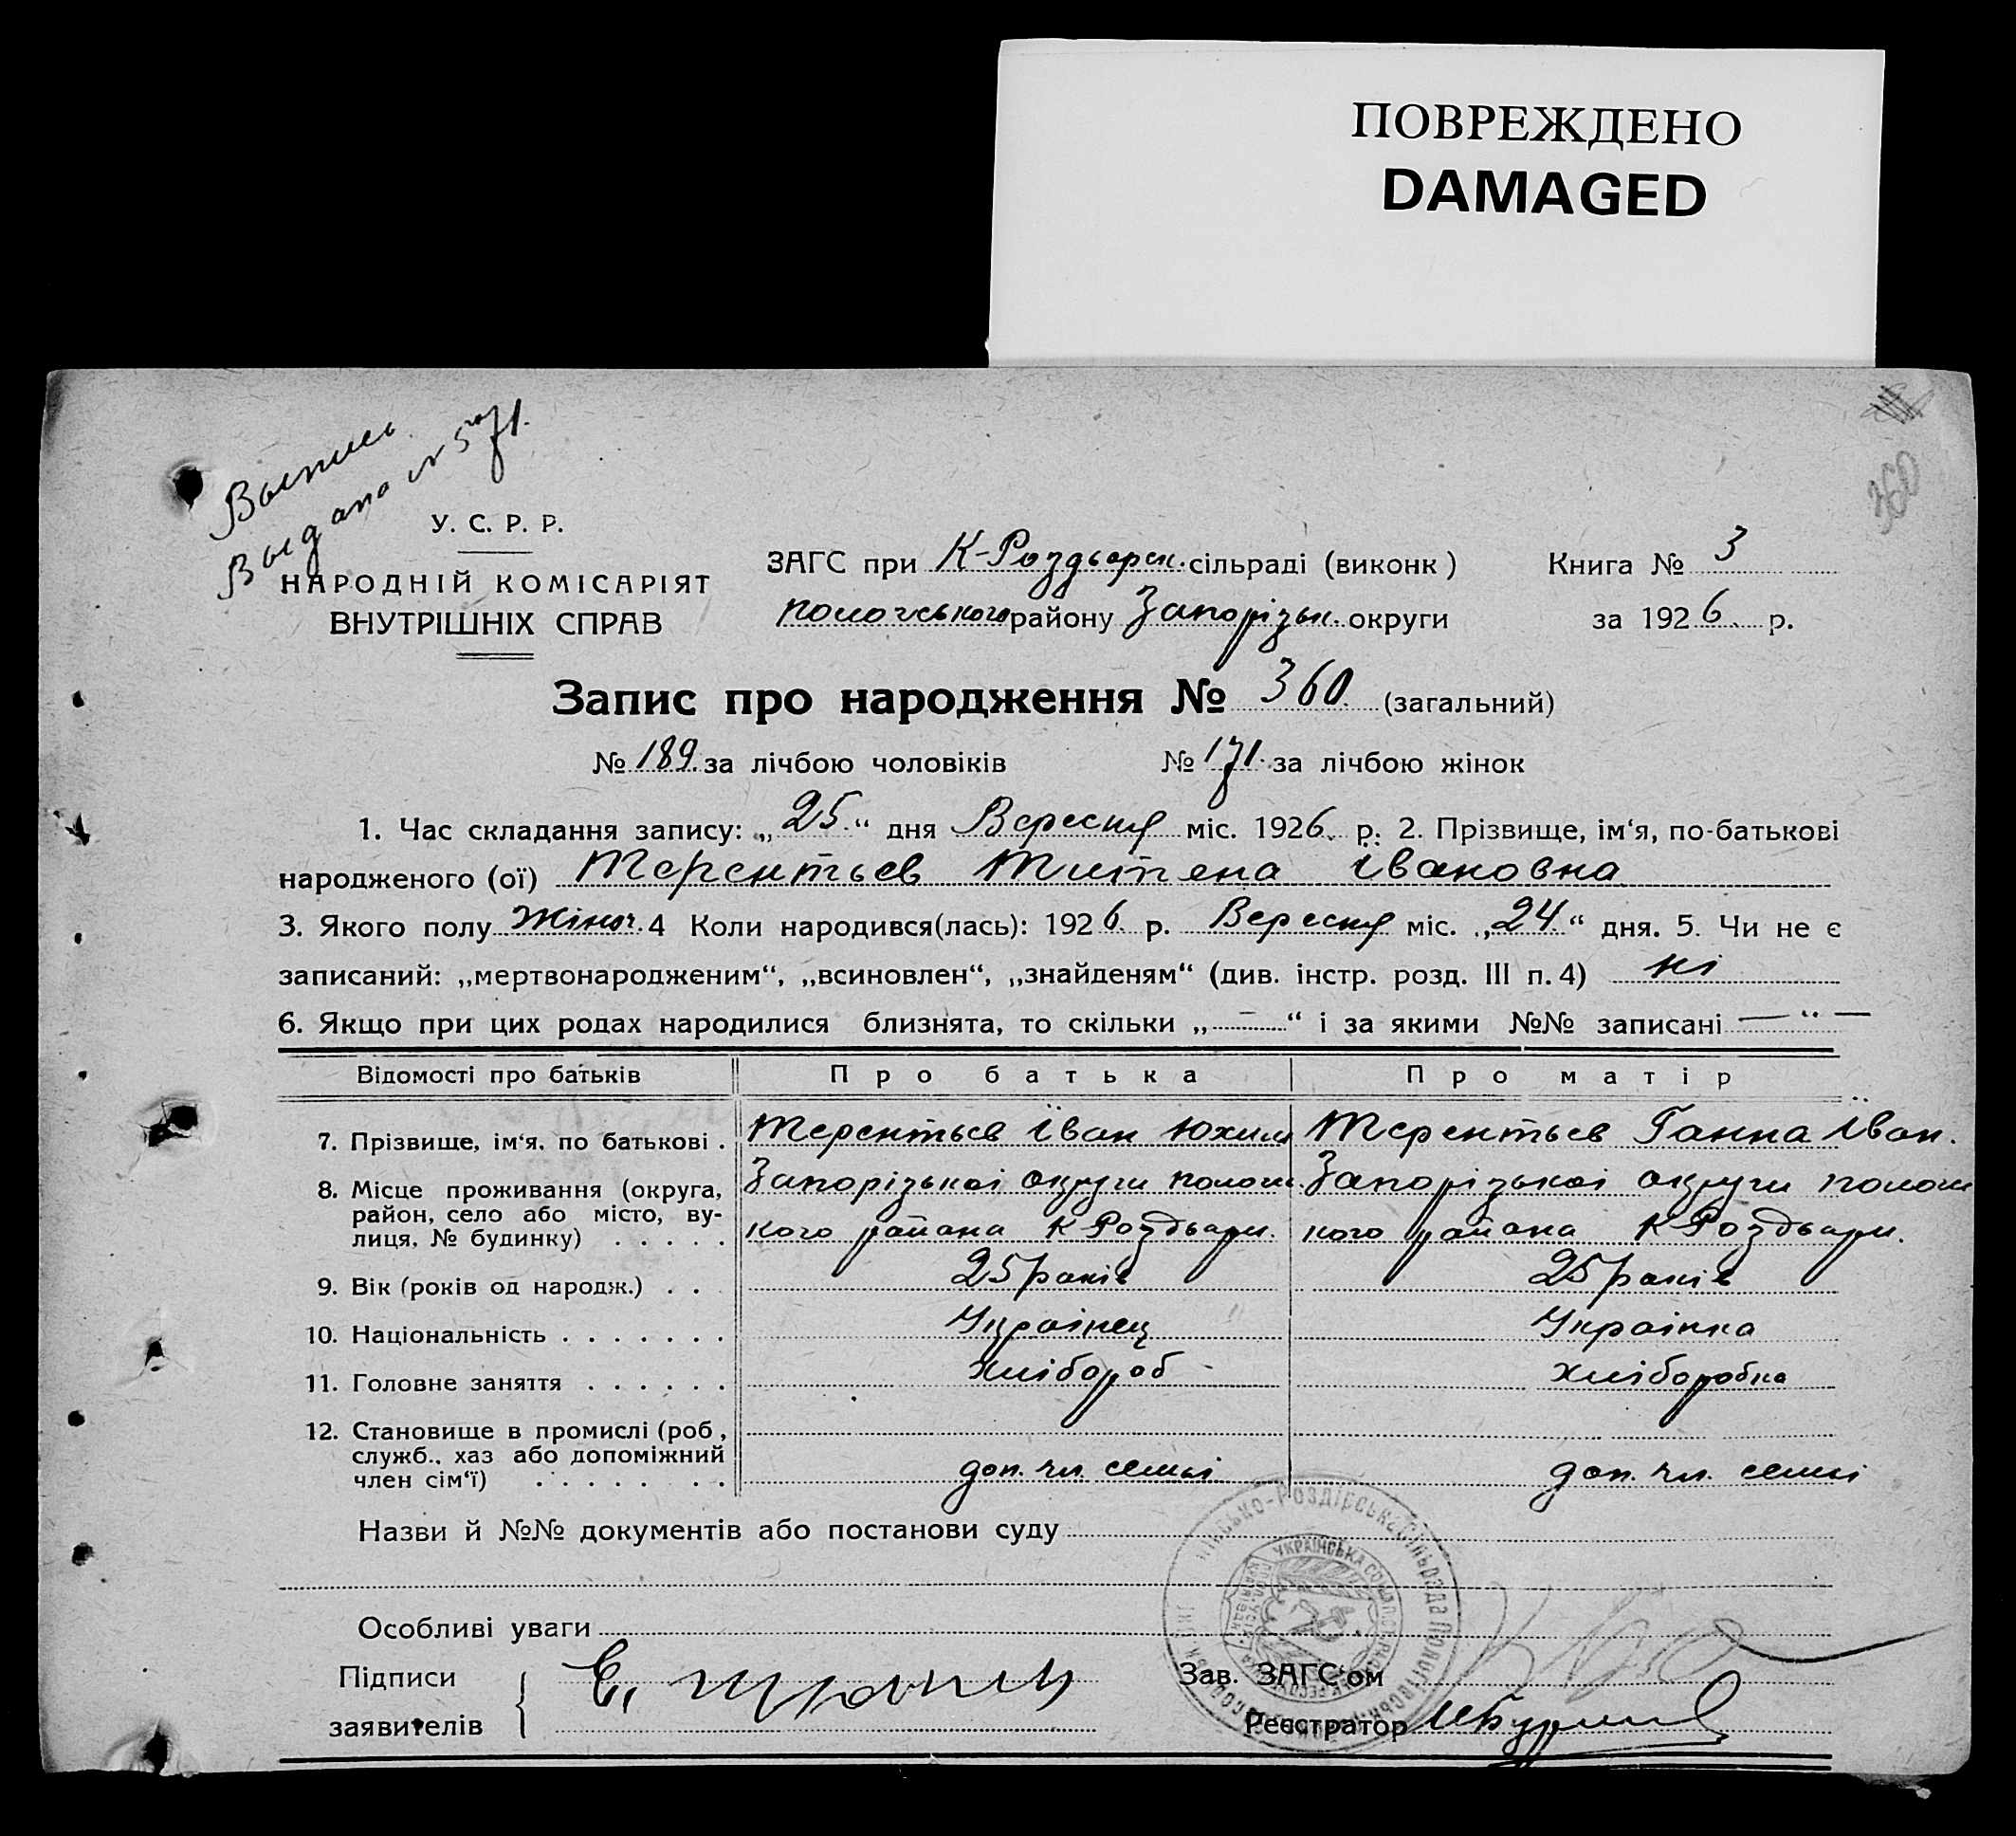 ПОВРЕЖДЕНО
DAMAGED
360
Выпись
Выдана
У. С. Р. Р.
НАРОДНІЙ КОМІСАРІЯТ
ВНУТРІШНІХ СПРАВ
ЗАГС при К-Роздьорск. сільраді (виконк) Книга № 3
пологського району Запорізьк. округи за 1926 р.
Запис про народження № 360. (загальний)
№ 189. за лічбою чоловіків № 171. за лічбою жінок
1. Час складання запису: „25.“ дня Вересня міс. 1926 р. 2. Прізвище, ім‘я, по-батькові
народженого (ої) Терентьєв Івановна
3. Якого полу Жіноч. 4 Коли народився(лась): 1926. р. Вересня міс. „24.“ дня. 5. Чи не є
записаний: „мертвонародженим“, „всиновлен“, „знайденям“ (див. інстр. розд. III п. 4) ні
6. Якщо при цих родах народилися близнята, то скільки „ — “ і за якими №№ записані — “ —
Відомості про батьків Про батька Про матір
7. Прізвище, ім‘я, по батькові . Терентьєв Іван Юхим Терентьєв Ганна Іван.
8. Місце проживання (округа, Запорізької округи полош. Запорізької округи полош
район, село або місто, ву-
лиця, № будинку) . . . . . кого района К Роздьорк. кого района К Роздьорк.
9. Вік (років од народж.) . . . 25 років 25 років
10. Національність . . . . . . . Українец Українка
11. Головне заняття . . . . . . Хлібороб Хліборобка
12. Становище в промислі (роб,
служб., хаз або допоміжний
член сім‘ї) . . . . . . . доп. чл. семьі доп. чл. семьі
Назви й №№ документів або постанови суду
Особливі уваги
Підписи Зав. ЗАГС‘ом
заявителів Реєстратор